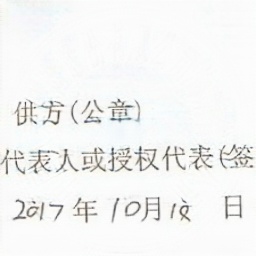 供方(公章)
代表人或授权代表(签
2017年10月18日